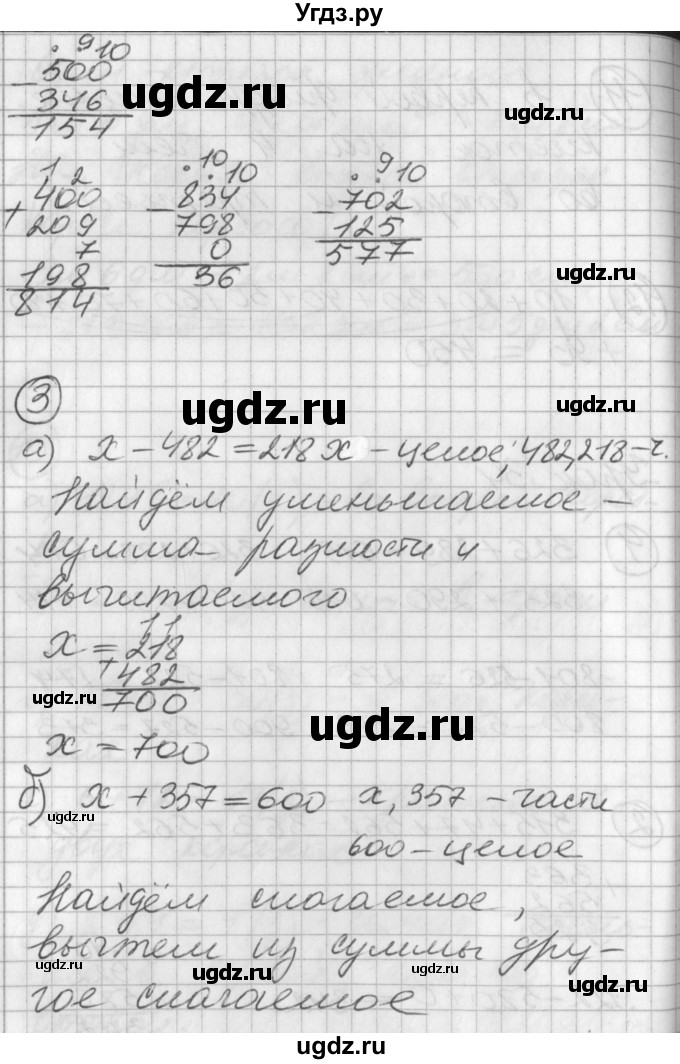 Угдз.ру
. 9 10
500
− 346
154
1 2
400
+ 209
7
198
814
. 10 . 10
834
− 798
0
36
. . 9 10
702
− 125
577
3
а) х − 482 = 218 х − целое; 482, 218 − ч.
Найдём уменьшаемое −
сумма разности и
вычитаемого
1 1
х = 218
+ 482
700
х = 700
б) х + 357 = 600 х, 357 − части
600 − целое
Найдём слагаемое,
вычтем из суммы дру-
гое слагаемое
ugdz.ru
ugdz.ru
ugdz.ru
ugdz.ru
ugdz.ru
ugdz.ru
ugdz.ru
ugdz.ru
ugdz.ru
ugdz.ru
ugdz.ru
ugdz.ru
ugdz.ru